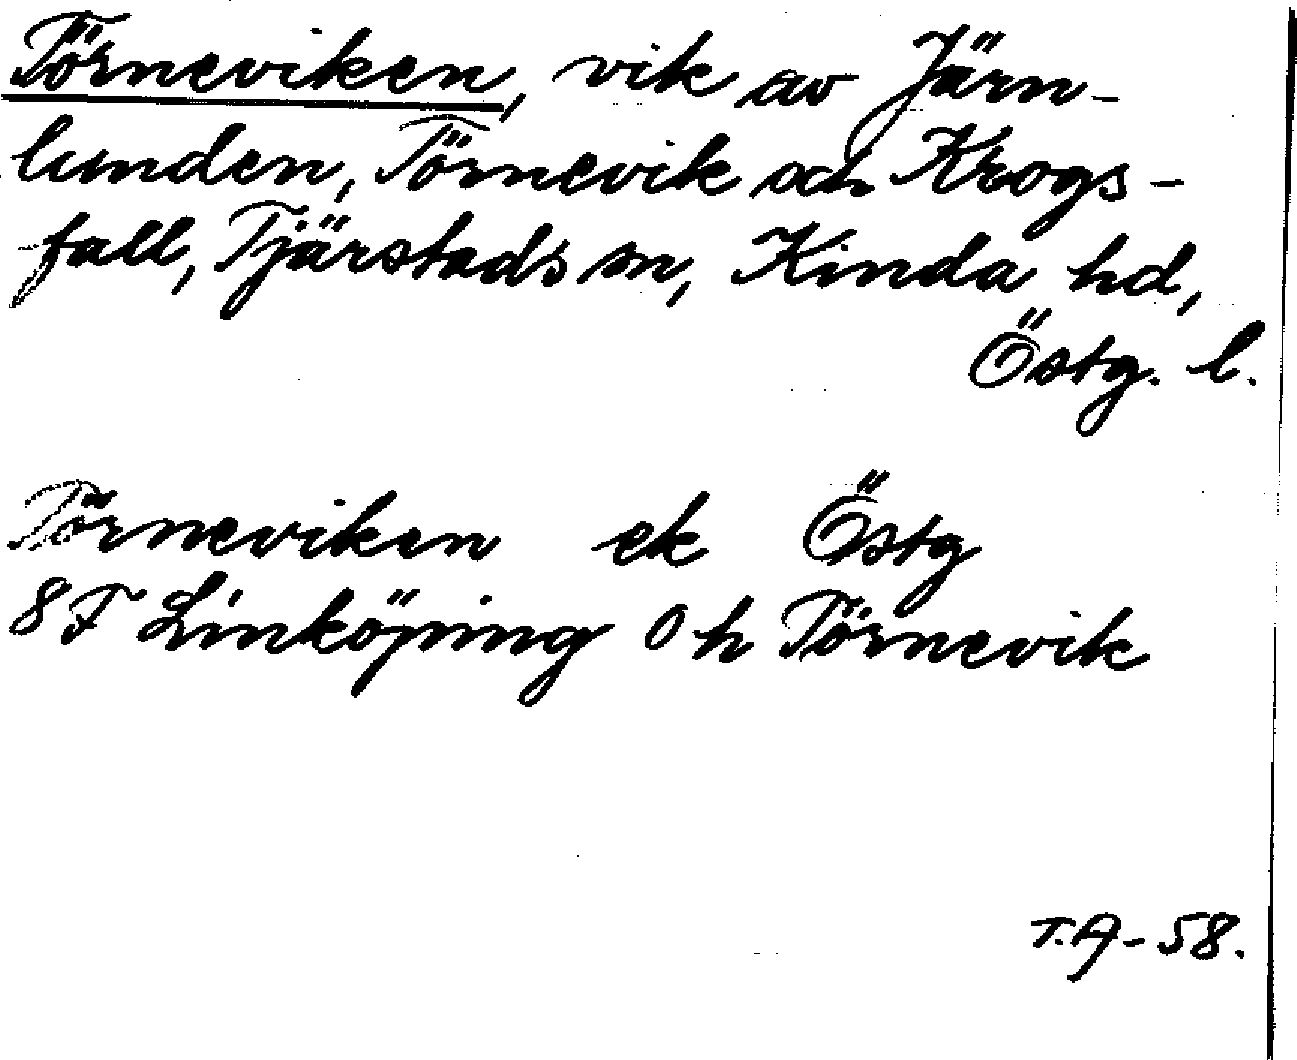 Törneviken, vik av Järn-
lunden, Törnevik och Krogs-
fall, Tjärstads sn, Kinda hd,
Östg. l.
Törneviken ek Östg
8 F Linköping Oh Törnevik
T.A-58.